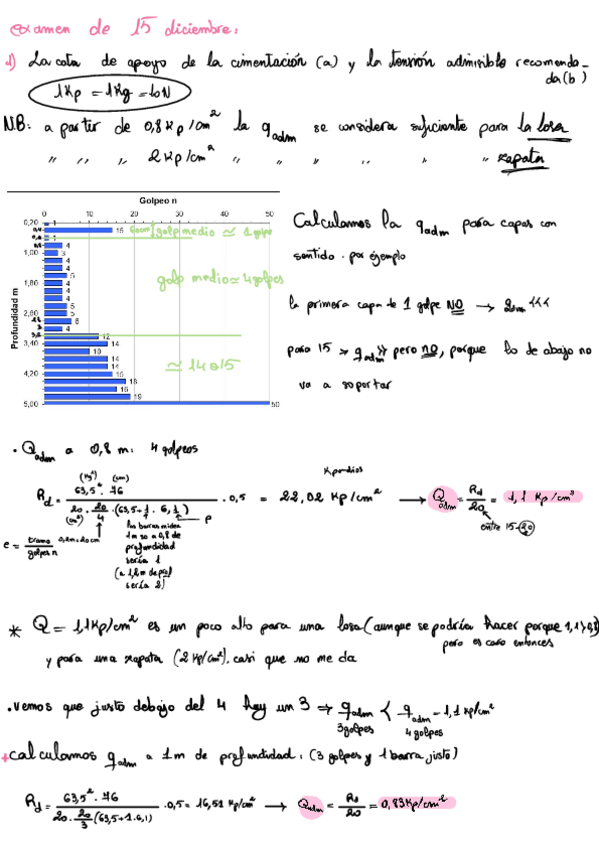 examen de 15 diciembre:
1) La cota de apoyo de la cimentación (a) y la tensión admisible recomenda_
da (b)
1Kp = 1Kg = 10N
N.B: a partir de 0,8 Kp/cm² la q adm se considera suficiente para la losa
" " " 2 Kp/cm² " " " " " " zapata
Golpeo n
0 10 20 30 40 50
Profundidad m
0,20
1,00
1,80
2,60
3,40
4,20
5,00
15
1
4
3
4
4
5
4
4
4
5
5
6
4
12
14
10
14
14
15
18
16
19
50
golp medio ≃ 1 golpe
golp medio ≃ 4 golpes
≃ 14 o 15
Calculamos la q adm para capas con
sentido. por ejemplo
la primera capa de 1 golpe NO → q adm <<<
para 15 > q adm >> pero no, porque lo de abajo no
va a soportar
• Q adm a 0,8 m: 4 golpeos
(Kg) (cm)
Rd = 63,5² · 76 / 20 · 20/4 · (63,5 + 1 · 6,1) · 0,5 = 22,02 Kp/cm² → Q adm = Rd/20 = 1,1 Kp/cm²
(cm²) P
entre 15-20
e = tramo / golpes n 0,2m = 20cm
las barras miden
1m so a 0,8 de
profundidad
sería 1
(a 1,2m de prof
sería 2)
* Q = 1,1 Kp/cm² es un poco alto para una losa (aunque se podría hacer porque 1,1 > 0,8
pero es caro entonces
y para una zapata (2 Kg/cm²). casi que no me da
• vemos que justo debajo del 4 hay un 3 ⇒ q adm < q adm = 1,1 Kp/cm²
3 golpes 4 golpes
+ calculamos q adm a 1m de profundidad: (3 golpes y 1 barra justo)
Rd = 63,5² · 76 / 20 · 20/3 (63,5 + 1 · 6,1) · 0,5 = 16,51 Kg/cm² → Q adm = Rd/20 = 0,83 Kp/cm²